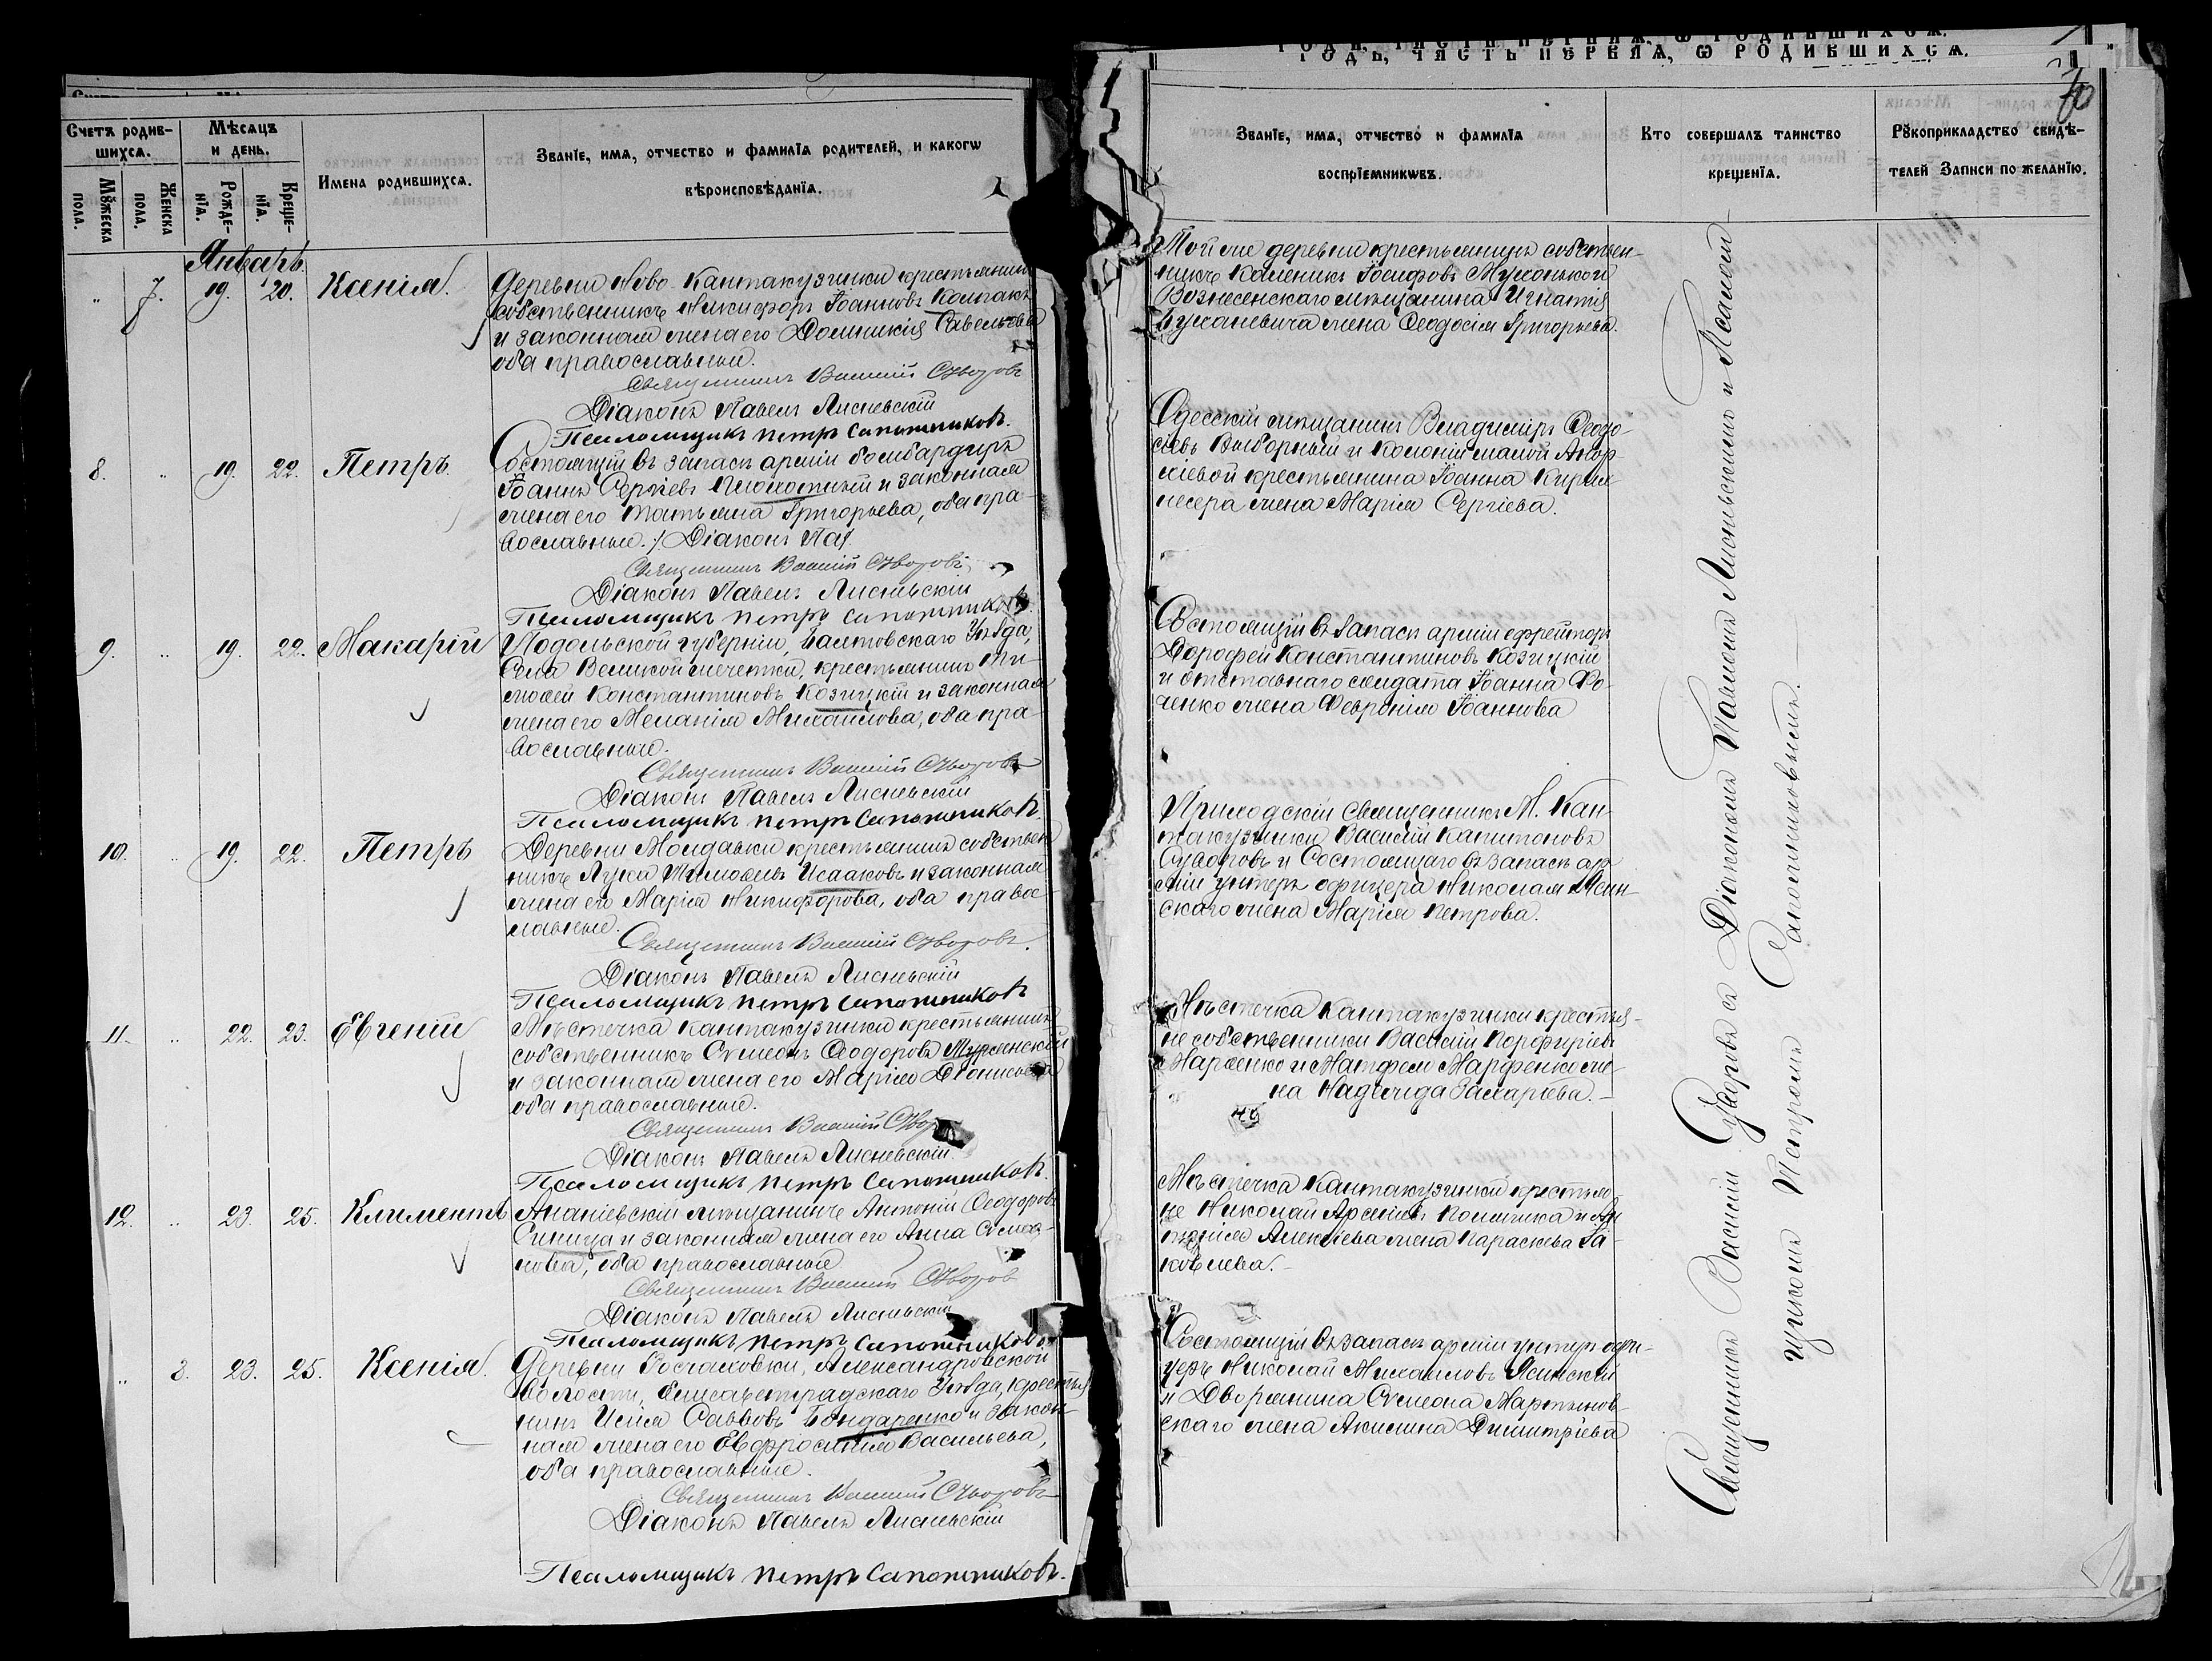 ГОДЪ, ЧАСТЬ ПЕРВАЯ, Ѡ РОДИВШИХСѦ.
70
Счетъ родив-
шихсѧ.
Мѣсѧцъ
и день.
Мꙋжеска
пола.
Женска
пола.
Рожде-
нїѧ.
Креще-
нїѧ.
Имена родившихсѧ.
Званїе, имѧ, отчество и фамилїѧ родителей, и какогѡ
вѣроисповѣданїѧ.
Званїе, имѧ, отчество и фамилїѧ
воспрїемникѡвъ.
Кто совершалъ таинство
крещенїѧ.
Рꙋкоприкладство свидѣ-
телей записи по желанїю.
Январь.
" 7. 19. 20. Ксенія.
Деревни Ново-Кантакузинки крестьянинъ
собственникъ Никифоръ Іоанновъ
и законная жена его Домникія Савельева
оба православные.
Священникъ Василій Суворовъ
Діаконъ Павелъ Лисневскій
Псаломщикъ Петръ Сапожниковъ.
Той же деревни крестьянинъ собствен-
никъ Іосифовъ
Вознесенскаго мѣщанина Игнатія
жена Ѳеодосія Григорьева.
8. " 19. 22. Петръ
Состоящій въ запасѣ арміи бомбардиръ
Іоаннъ Сергіевъ и законная
жена его Татьяна Григорьева, оба пра-
вославные. / Діаконъ Пав.
Священникъ Василій Суворовъ
Діаконъ Павелъ Лисневскій
Псаломщикъ Петръ Сапожниковъ.
Одесскій мѣщанинъ Владиміръ Ѳеодо-
сіевъ Выборный и Колоніи малой
крестьянина Іоанна
жена Марія Сергіева.
9. " 19. 22. Макарій
Подольской губерніи, Балтовскаго Уѣзда,
Села Великой мечетки, крестьянинъ Ти-
моѳей Константиновъ Козицкій и законная
жена его Меланія Михаилова, оба пра-
вославные.
Священникъ Василій Суворовъ
Діаконъ Павелъ Лисневскій
Псаломщикъ Петръ Сапожниковъ.
Состоящій въ запасѣ арміи ефрейторъ
Дорофей Константиновъ Козицкій
и отставнаго солдата Іоанна Фо-
менко жена Февронія Іоаннова
10. " 19. 22. Петръ
Деревни Молдавки крестьянинъ собствен-
никъ Лука Тимоѳеевъ Исааковъ и законная
жена его Марія Никифорова, оба право-
славные.
Священникъ Василій Суворовъ.
Діаконъ Павелъ Лисневскій
Псаломщикъ Петръ Сапожниковъ
Приходскій Священникъ М. Кан-
такузинки Василій Капитоновъ
Суворовъ и Состоящаго въ запасѣ ар-
міи унтеръ офицера Николая Ясин-
скаго жена Марія Петрова.
11. " 22. 23. Евгеній
Мѣстечка Кантакузинки крестьянинъ
собственникъ Симеонъ Ѳеодоровъ
и законная жена его Марія Діонисова
оба православные.
Священникъ Василій Сувор
Діаконъ Павелъ Лисневскій.
Псаломщикъ Петръ Сапожниковъ.
Мѣстечка Кантакузинки крестья-
не собственники Василій Порфиріевъ
Марфенко и Матфея Марфенко же-
на Надежда Захарьева.
12. " 23. 25. Климентъ
Ананіевскій мѣщанинъ Антоній Ѳеодоровъ
Синица и законная жена его Анна Симео-
нова, оба православные
Священникъ Василій Суворовъ
Діаконъ Павелъ Лисневскій
Псаломщикъ Петръ Сапожниковъ.
Мѣстечка Кантакузинки крестья-
не Николай Арсеніевъ и Ан-
дрея Алексіева жена Параскева Іа-
ковлева.
" 3. 23. 25. Ксенія.
Деревни Александровской
Волости, Елисаветградскаго Уѣзда, крестья-
нинъ Илія Саввовъ Бондаренко и закон-
ная жена его Евфросинія Васильева,
оба православные.
Священникъ Василій Суворовъ
Діаконъ Павелъ Лисневскій
Псаломщикъ Петръ Сапожниковъ.
Состоящій въ запасѣ арміи унтеръ офи-
церъ Николай Михаиловъ Ясинскій
и Дворянина Симеона Мартынов-
скаго жена Акилина Димитріева
Священникъ Василій Суворовъ съ Діакономъ Павломъ Лисневскимъ и Псаломъ
щикомъ Петромъ Сапожниковымъ.